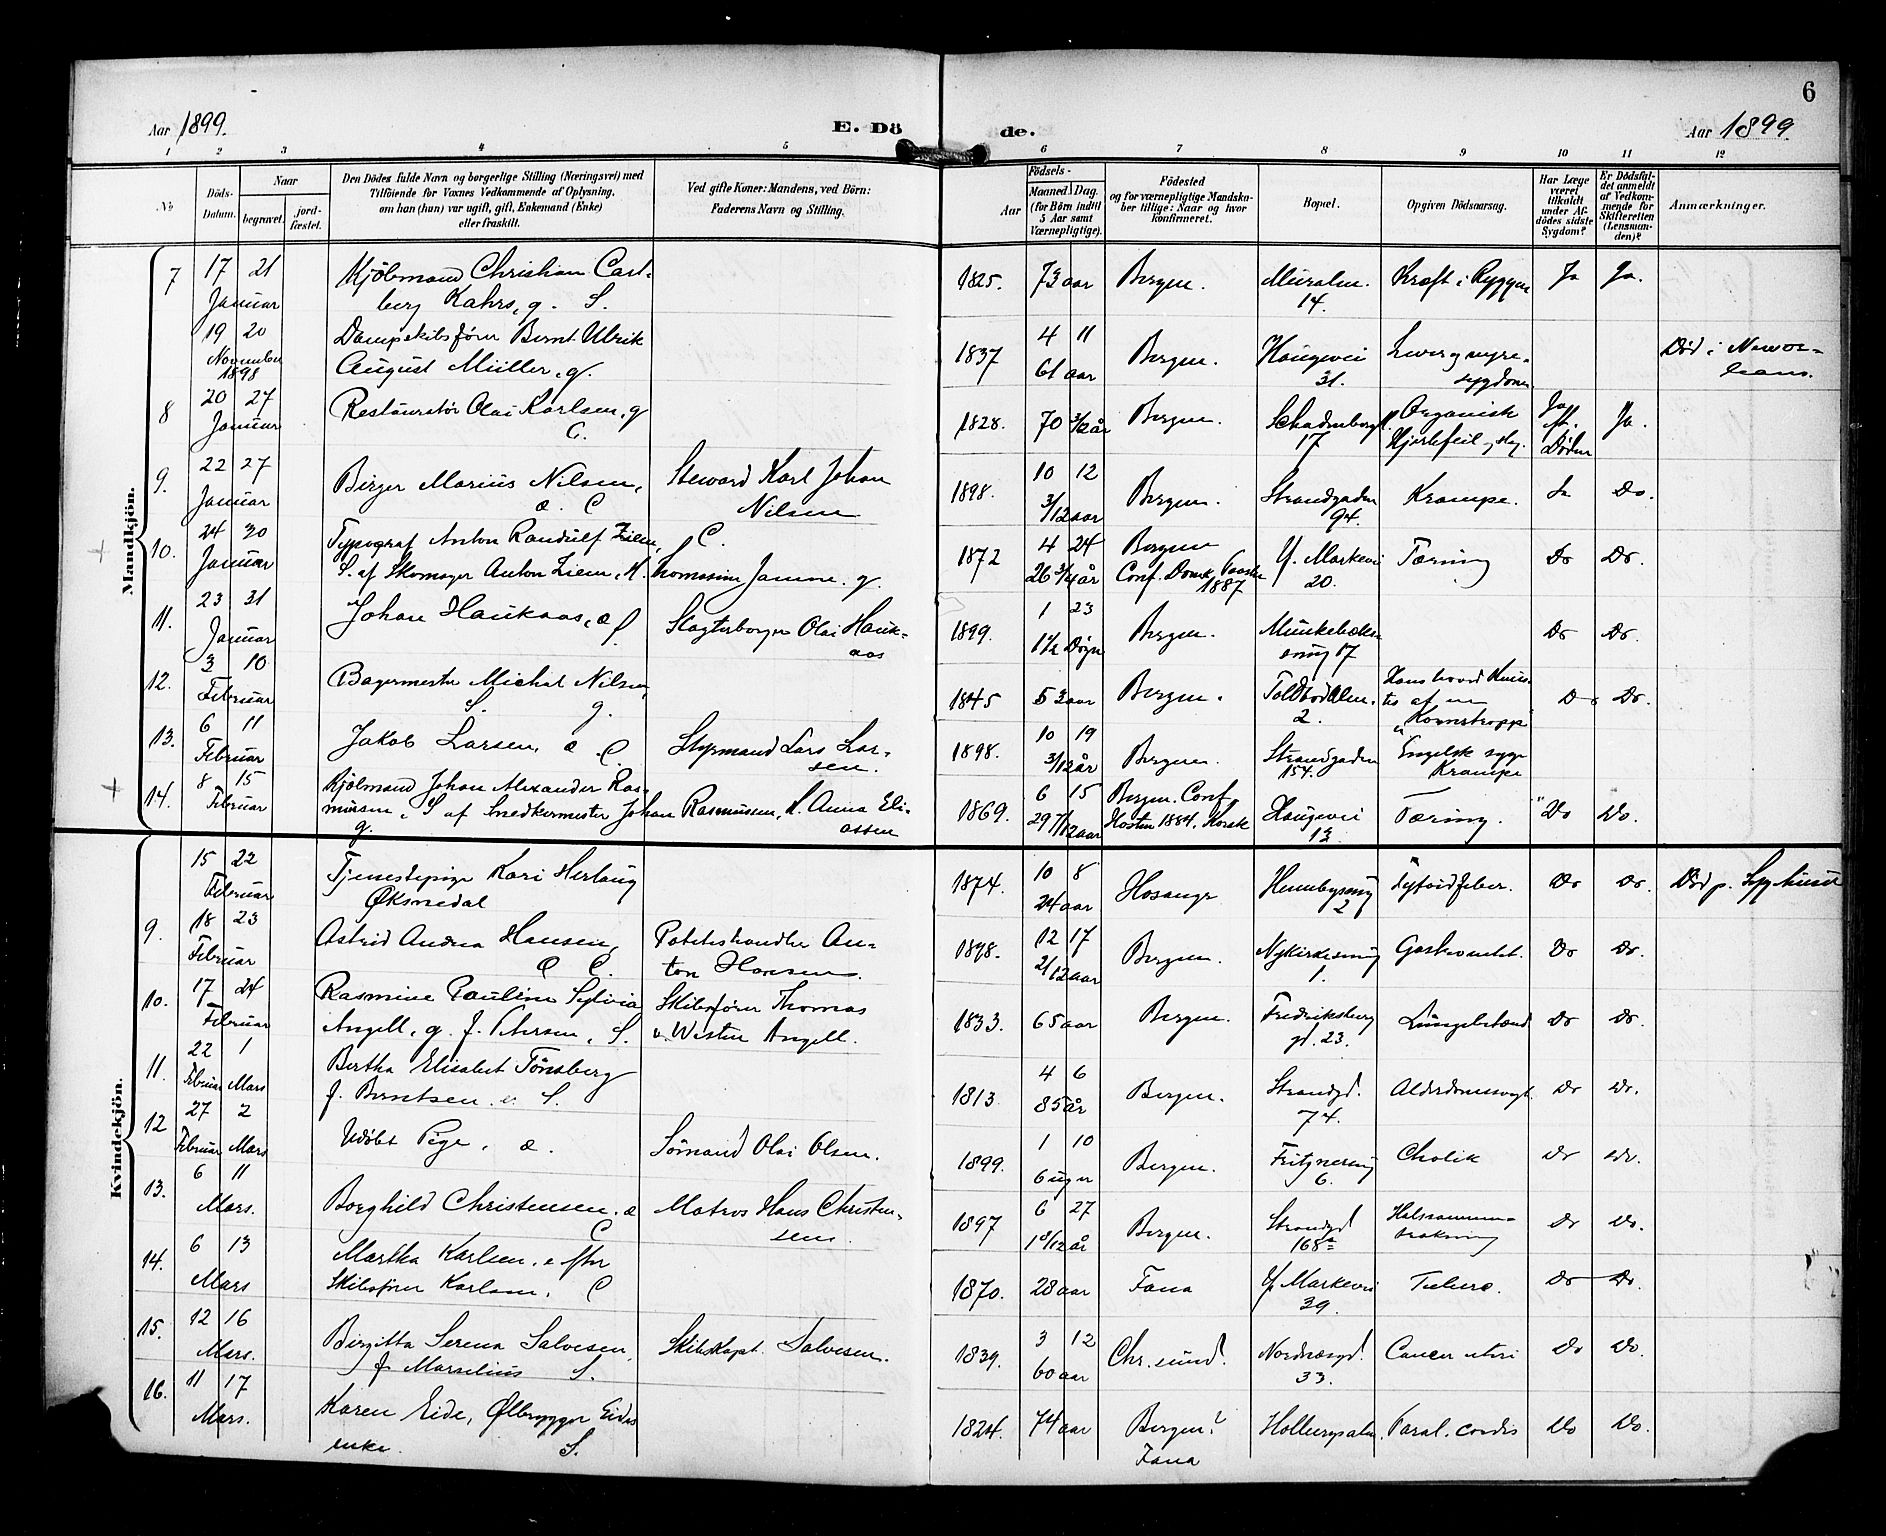 6
Aar 1899.
E. Dö de.
Aar 1899
1 2 3 4 5 6 7 8 9 10 11 12
No
Döds-Datum.
Naar
begravet.
jord-fæstet.
Den Dödes fulde Navn og borgerlige Stilling (Næringsvei) med
Tilföiende for Voxnes Vedkommende af Oplysning,
om han (hun) var ugift, gift, Enkemand (Enke)
eller fraskilt.
Ved gifte Koner: Mandens, ved Börn:
Faderens Navn og Stilling.
Födsels-
Aar
Maaned. Dag.
(for Börn indtil
5 Aar samt
Værnepligtige).
Födested
og for værnepligtige Mandska-
ber tillige: Naar og hvor
konfirmeret.
Bopæl.
Opgiven Dödsaarsag.
Har Læge
været
tilkaldt
under Af-
dödes sidste
Sygdom?
Er Dödsfal-
det anmeldt
af Vedkom-
mende for
Skifteretten
(Lensman-
den)?
Anmærkninger.
Mandkjön.
7 17 21 Januar Kjöbmand Christian Carl-
berg Kahrs, g. S.
1825. 73 aar Bergen. Muralm. 14. Kræft i Ryggen Ja Ja.
19 20 November 1898 Dampskibsförer Bernt Ulrik
August Müller, g.
1837 4 11 61 aar Bergen. Haugevei 31. Lever og nyre-
sygdom Död i New Or-
leans.
8 20 24 Januar Restauratör Olai Karlsen, g
C.
1828. 70 3/12 år Bergen. 17 Organisk
Hjertefeil Ja eft. Döden Ja.
9. 22 27 Januar Birger Marius Nilsen,
æ. C
Steward Karl Johan
Nilsen
1898. 10 12 3/12 aar Bergen. Strandgaden 94. Krampe. Ja Do.
10. 24 30 Januar Typograf Anton Randulf Ziem, C.
S. af Skomager Anton Ziem, H. Thomasine Janne. g.
1872 4 24 26 3/4 år Bergen
Conf. Domk. Vaaren 1887 Y. Markevei 20. Tæring Do Do.
11. 23 31 Januar Johan Haukaas, æ
Slagterborger Olai Hauk-
aas
1899. 1 23 1 1/2 Døgn Bergen. 17 Do Do.
12. 3 10 Februar Bagermester Michal Nilsen,
S. g.
1845 53 aar Bergen. Toldbodalm. 2. af en
"Kornstropp" Do Do.
13. 6 11 Februar Jakob Larsen, æ C.
Styrmand Lars Lar-
sen.
1898. 10 19 3/12 år Bergen. Strandgaden 154. Engelsk syge
Krampe
14. 8 15 Februar Kjöbmand Johan Alexander Ras-
mussen, S af Snedkermester Johan Rasmussen, H. Anna Eli-
assen
g.
1869. 6 15 29 7/12 aar Bergen. Conf.
Hösten 1884. Korsk Haugevei 13 Tæring. Do Do.
Kvindekjön.
15 22 Februar Tjenestepige Kari Herlaug
Øksnedal
1874. 10 8 24 aar Hosanger 2 Tyfoidfeber. Do Do. Död p. Sygehuset
9. 18 23 Februar Astrid Andrea Hansen,
æ C.
Potetshandler An-
ton Hansen.
1898. 12 17 2/12 aar Bergen. Nykirkesmug 1. Do Do.
10. 17 24 Februar Rasmine Pauline Sylvia
Angell, g. f. Petersen, S.
Skibsförer Thomas
v. Westen Angell.
1833. 65 aar Bergen. Fredriksberg
gd. 23. Lungebetænd Do Do.
11. 22 Februar 1 Mars Bertha Elisabet Tönsberg
f. Berntsen e. S.
1813 4 6 85 år Bergen. Strandgd. 74. Alderdomssvagh Do Do.
12 27 Februar 2 Mars Udöbt Pige, æ.
Sömand Olai Olsen.
1899. 1 10 6 uger Bergen. Fritznersmug 6. Cholik Do Do.
13. 6 11 Mars. Borghild Christensen, æ
C
Matros Hans Christen-
sen.
1897 6 27 1 8/12 år Bergen. Strandgd 168a Do Do.
14. 6 13 Mars Martha Karlsen, e. efter
Skibsförer Karlsen, C
1870. 28 aar Fana Y. Markevei 39. Tuberc. Do Do.
15. 12 16 Mars. Birgitta Serena Salvesen,
f. Marselius S.
Skibskapt. Salvesen.
1839. 3 12 60 aar Chr.sund. Nordnæsgd. 33. Cancer uteri Do Do.
16. 11 17 Mars. Karen Eide, Ølbrygger Eides
enke. S.
1824. 74 aar Bergen?
Fana Holbergsalm. Paral. cordis Do Do.